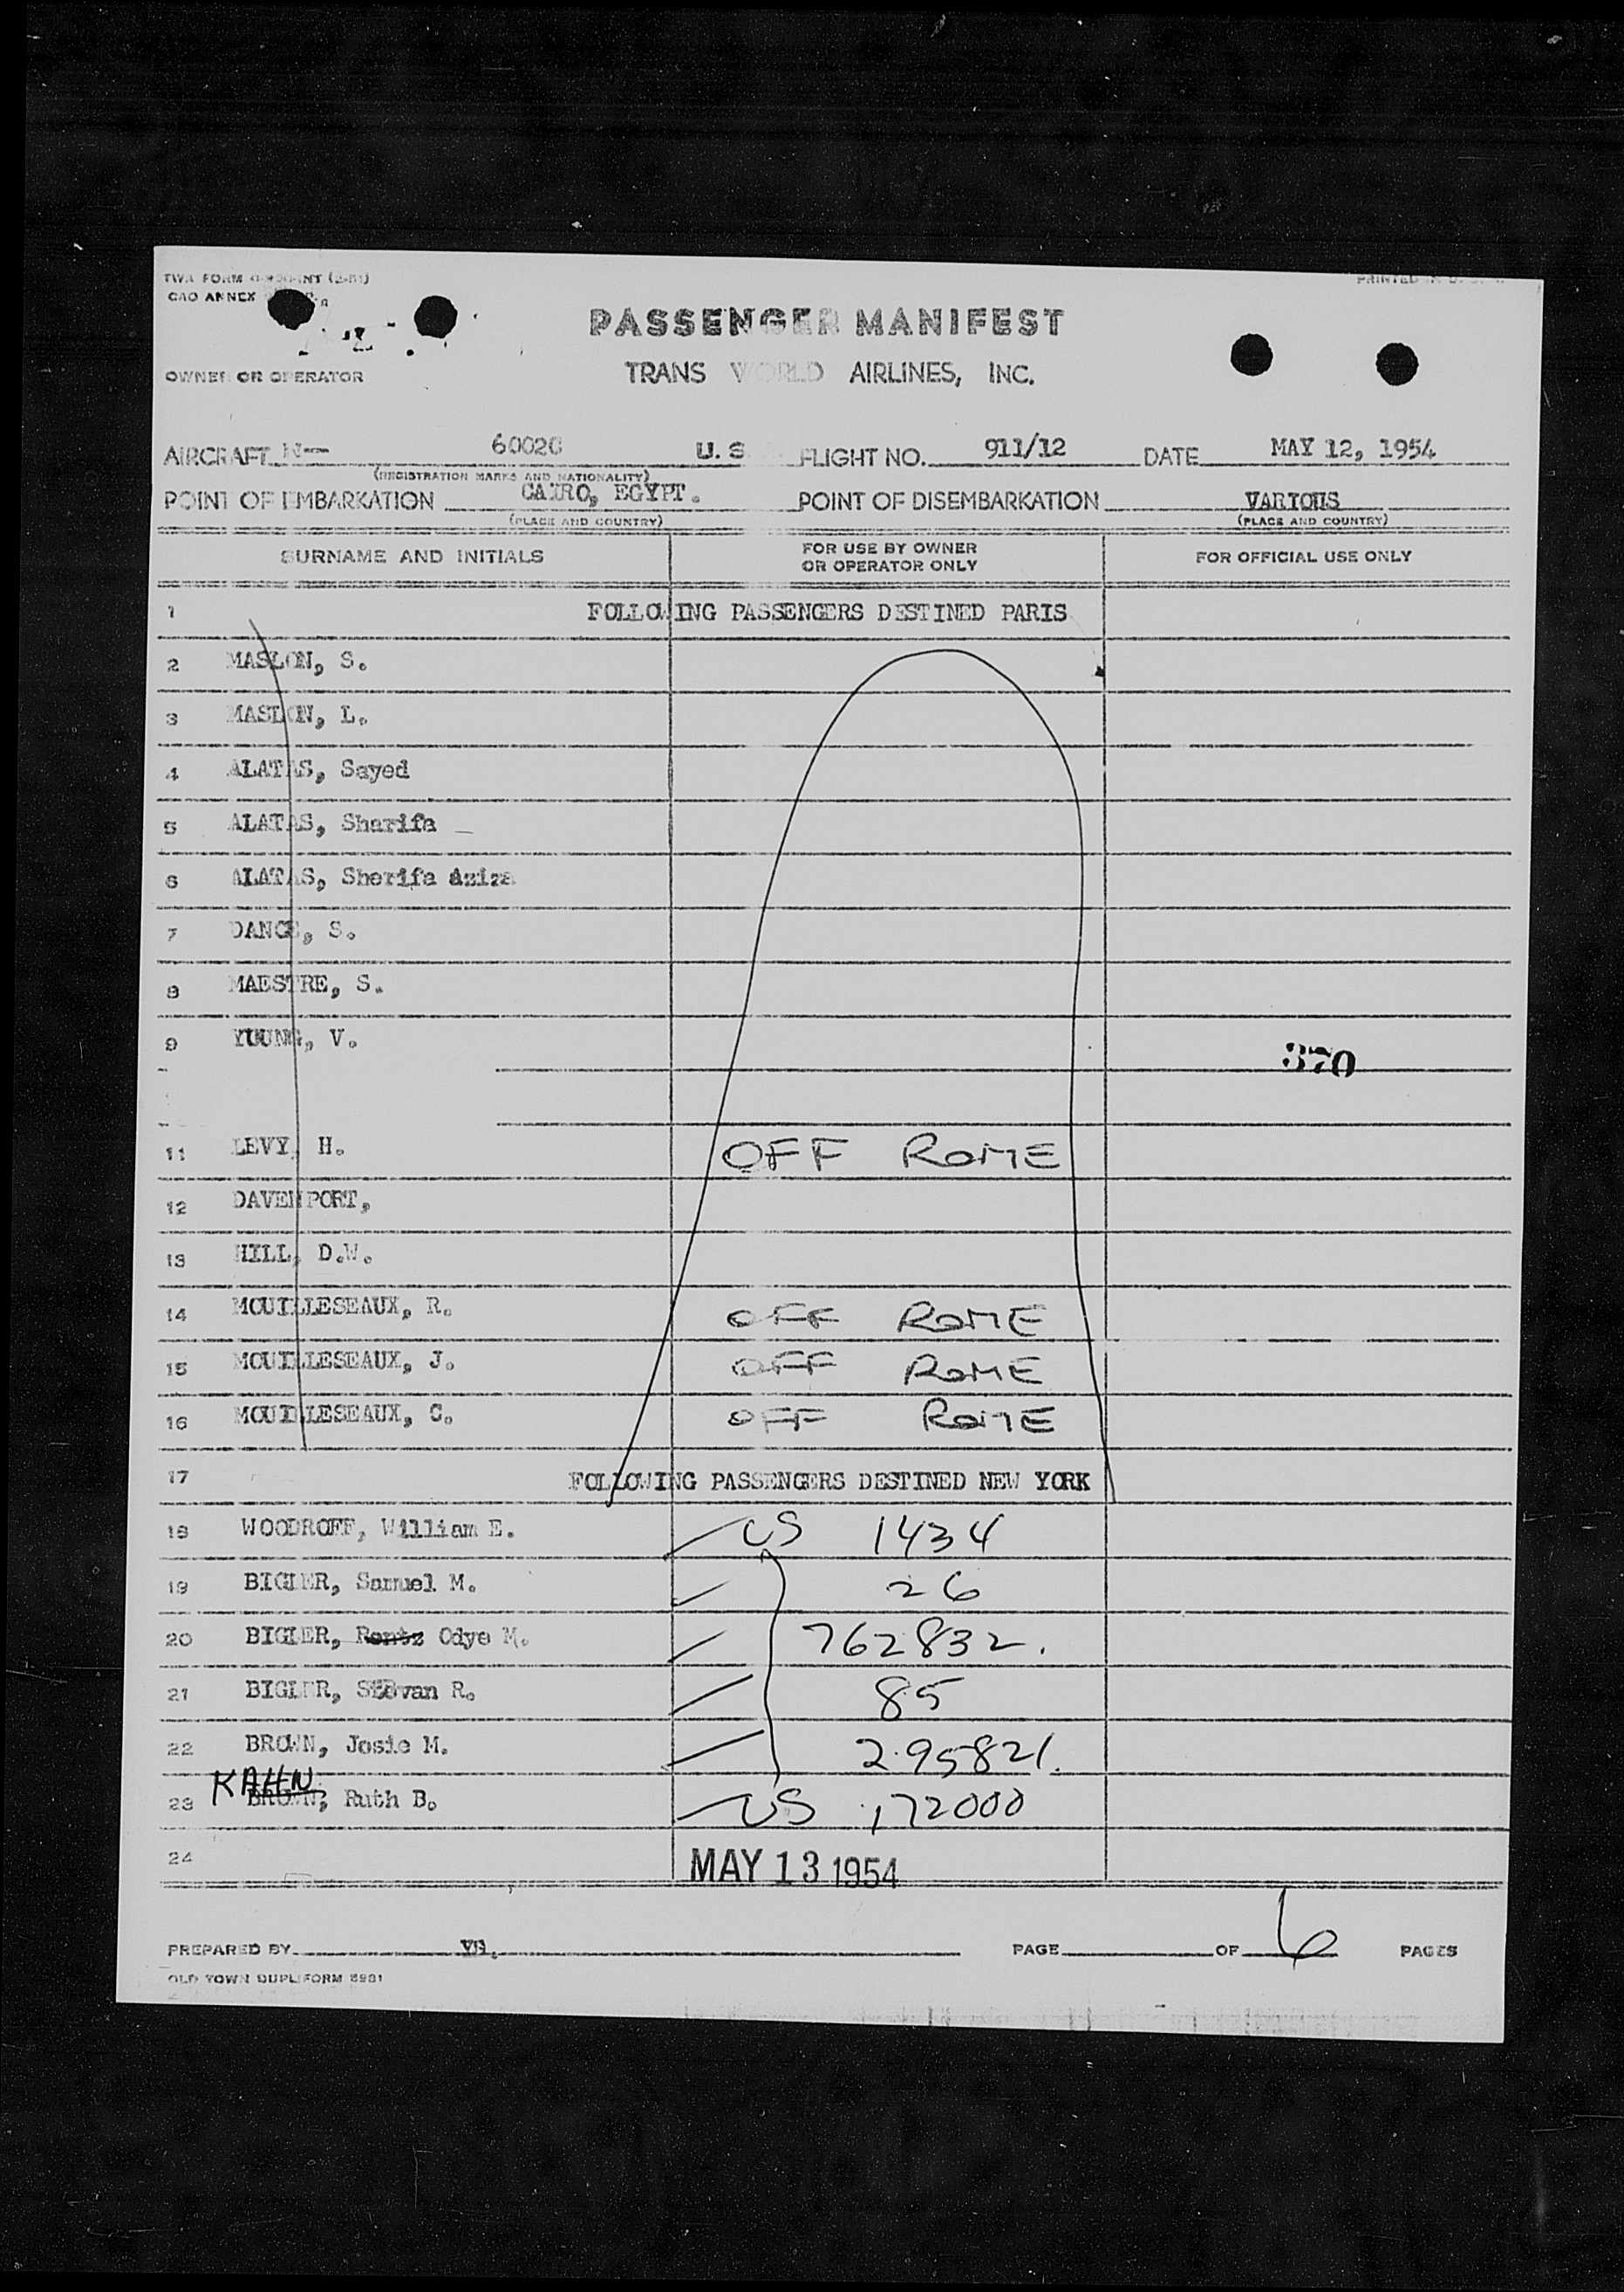 TWA FORM
CAO ANNEX
PASSENGER MANIFEST
OWNER OR OPERATOR
TRANS WORLD AIRLINES, INC.
AIRCRAFT N- 6002C U.S FLIGHT NO. 911/12 DATE MAY 12, 1954
(REGISTRATION MARKS AND NATIONALITY)
POINT OF EMBARKATION CAIRO, EGYPT. POINT OF DISEMBARKATION VARIOUS
(PLACE AND COUNTRY) (PLACE AND COUNTRY)
SURNAME AND INITIALS FOR USE BY OWNER OR OPERATOR ONLY FOR OFFICIAL USE ONLY
1 FOLLOWING PASSENGERS DESTINED PARIS
2 MASLON, S.
3 MASLON, L.
4 ALATAS, Sayed
5 ALATAS, Sharifa
6 ALATAS, Sherifa Aziza
7 DANCE, S.
8 MAESTRE, S.
9 YOUNG, V.
370
11 LEVY, H. OFF ROME
12 DAVENPORT,
13 HILL, D.W.
14 MOUILLESEAUX, R. OFF ROME
15 MOUILLESEAUX, J. OFF ROME
16 MOUILLESEAUX, C. OFF ROME
17 FOLLOWING PASSENGERS DESTINED NEW YORK
18 WOODROFF, William E. US 1434
19 BIGLER, Samuel M. 26
20 BIGLER, Rentz Odye M. 762832.
21 BIGLER, Stevan R. 85
22 BROWN, Josie M. 295821.
23 KAHN BROWN, Ruth B. US 172000
24 MAY 13 1954
PREPARED BY VB. PAGE OF 6 PAGES
OLD TOWN DUPLIFORM 5981